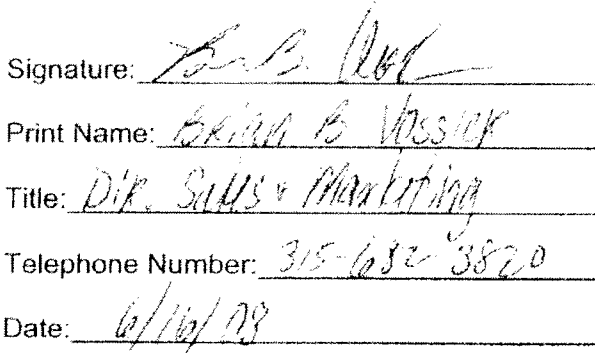 Signature:
Print Name: Brian B Vossler
Title: Dir. Sales & Marketing
Telephone Number: 315-632-3820
Date: 6/16/08